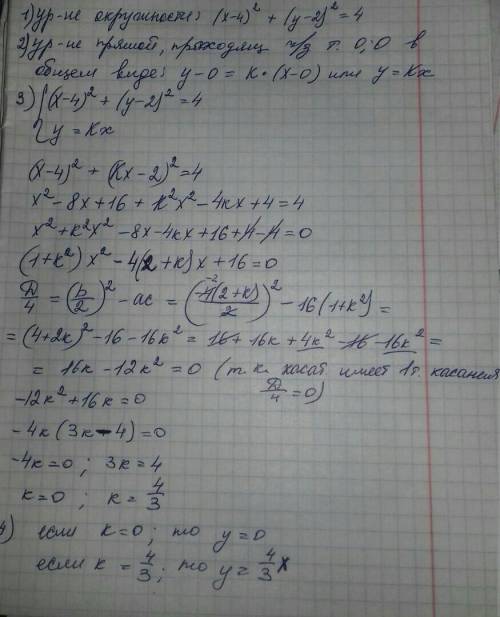 1) ур-не окружности: (x-4)² + (y-2)² = 4
2) ур-не прямой, проходящ ч/з т. 0;0 в
общем виде: y-0 = k·(x-0) или y = kx
3) { (x-4)² + (y-2)² = 4
y = kx
(x-4)² + (kx-2)² = 4
x² - 8x + 16 + k²x² - 4kx + 4 = 4
x² + k²x² - 8x - 4kx + 16 + 4 - 4 = 0
(1+k²)x² - 4(2+k)x + 16 = 0
D/4 = (b/2)² - ac = (-4(2+k)/2)² - 16(1+k²) =
-2
= (4+2k)² - 16 - 16k² = 16 + 16k + 4k² - 16 - 16k² =
= 16k - 12k² = 0 (т.к. касат имеет 1т. касания
D/4 = 0)
-12k² + 16k = 0
-4k(3k-4) = 0
-4k = 0; 3k = 4
k = 0; k = 4/3
4) если k = 0; то y = 0
если k = 4/3; то y = 4/3 x